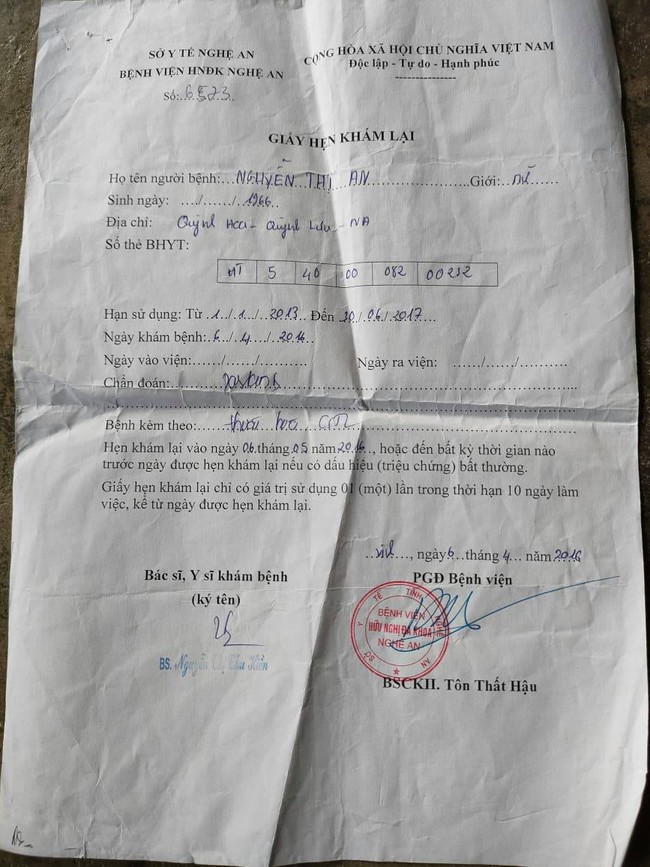 SỞ Y TẾ NGHỆ AN
BỆNH VIỆN HNĐK NGHỆ AN
Số: 6573
CỘNG HÒA XÃ HỘI CHỦ NGHĨA VIỆT NAM
Độc lập - Tự do - Hạnh phúc
GIẤY HẸN KHÁM LẠI
Họ tên người bệnh:...NGUYỄN THỊ AN.....Giới: nữ
Sinh ngày: ..../....../...1966
Địa chỉ: Quỳnh Hoa - Quỳnh Lưu - NA
Số thẻ BHYT:
HT 5 40 00 082 00232
Hạn sử dụng: Từ 1../.1../..2013.. Đến 30/.06./.2017...
Ngày khám bệnh: 6../..4../..2016.
Ngày vào viện:....../....../......... Ngày ra viện: ....../....../..........
Chẩn đoán:
Bệnh kèm theo: thoái hóa
Hẹn khám lại vào ngày 06.tháng.05 năm 2016.., hoặc đến bất kỳ thời gian nào
trước ngày được hẹn khám lại nếu có dấu hiệu (triệu chứng) bất thường.
Giấy hẹn khám lại chỉ có giá trị sử dụng 01 (một) lần trong thời hạn 10 ngày làm
việc, kể từ ngày được hẹn khám lại.
..Vinh..., ngày 6 tháng 4 năm 2016
Bác sĩ, Y sĩ khám bệnh
(ký tên)
BS. Nguyễn Thị Thu Hiền
PGĐ Bệnh viện
SỞ Y TẾ TỈNH NGHỆ AN
BỆNH VIỆN
HỮU NGHỊ ĐA KHOA
NGHỆ AN
BSCKII. Tôn Thất Hậu